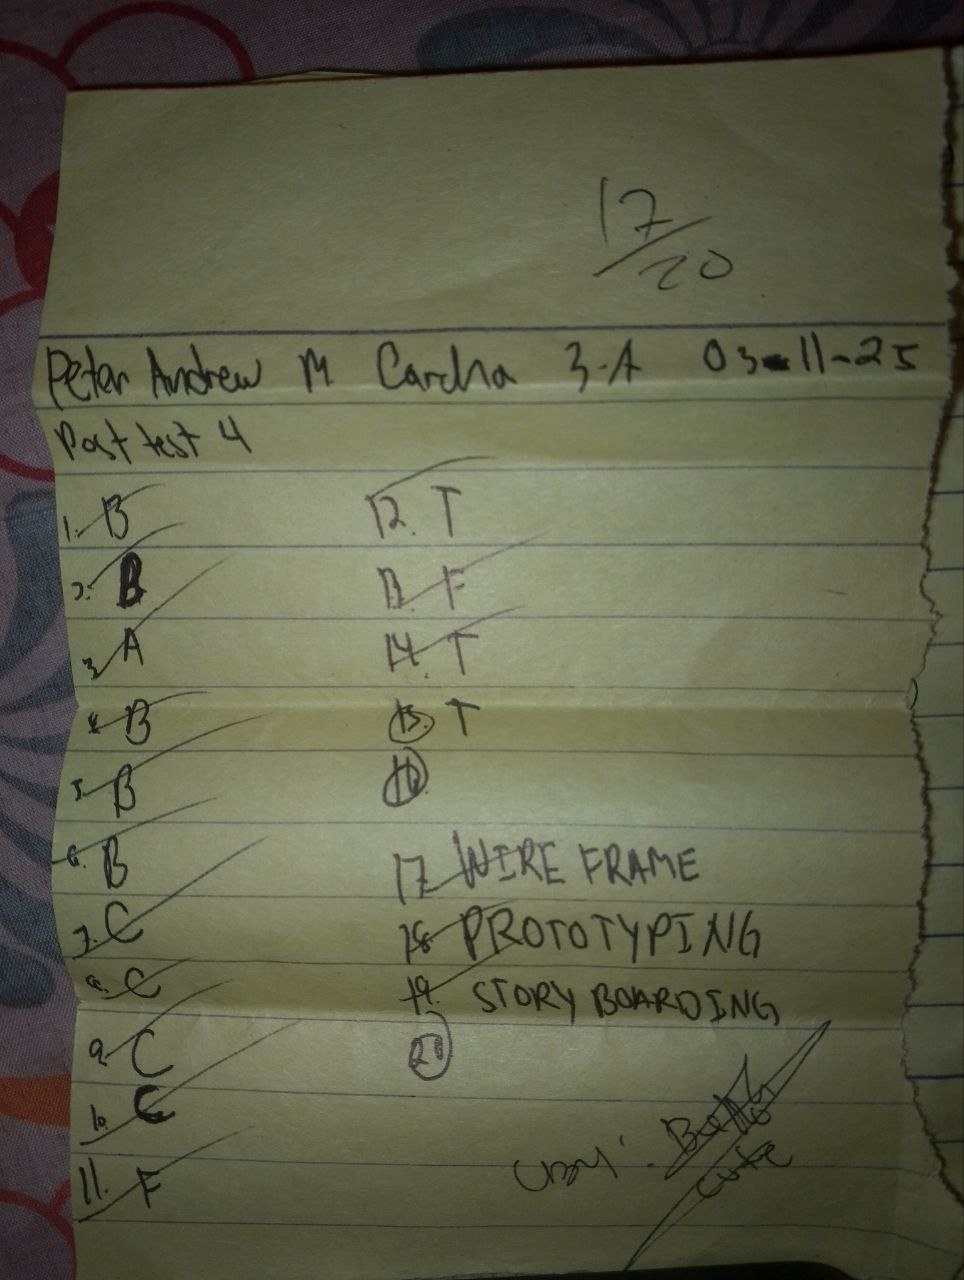 17/20
Peter Andrew M Carcha 3-A 03-11-25
Post test 4
1. B
2. B
3. A
4. B
5. B
6. B
7. C
8. C
9. C
10. C
11. F
12. T
13. F
14. T
15. T
16.
17. WIRE FRAME
18. PROTOTYPING
19. STORY BOARDING
20
cute